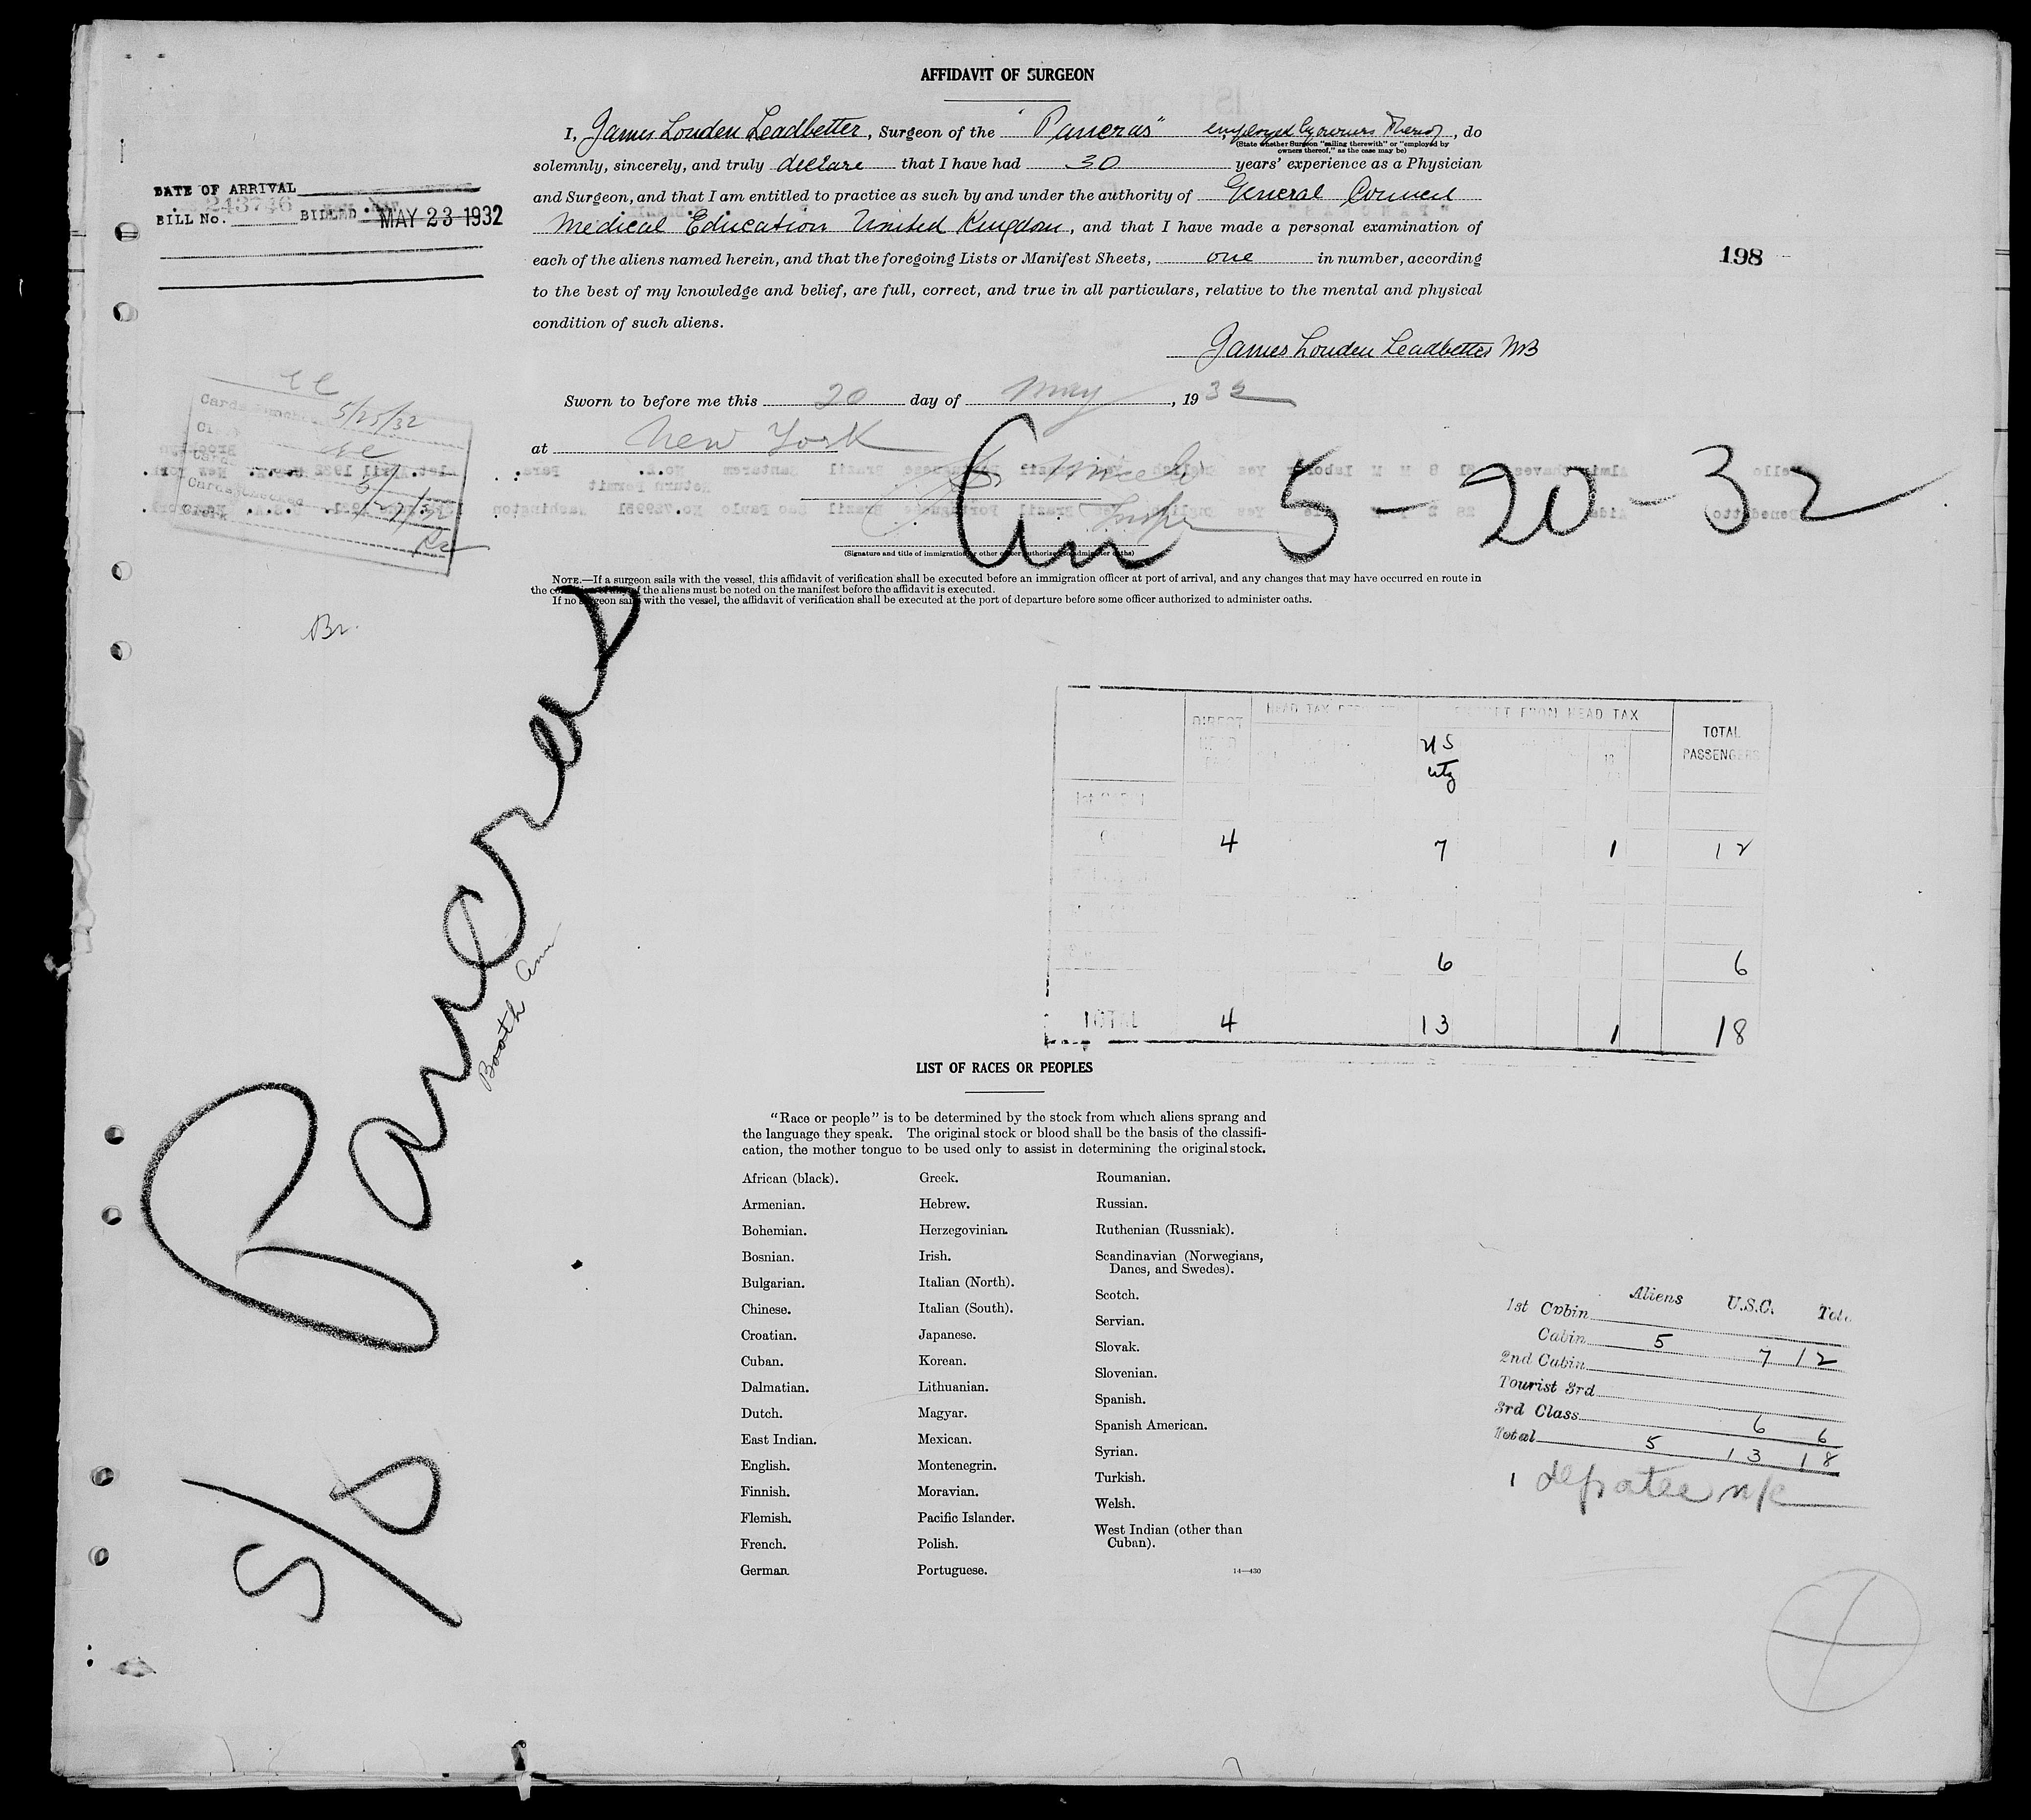 AFFIDAVIT OF SURGEON
I, James Louden Leadbetter, Surgeon of the "Pancras" employed by owners thereof, do
(State whether Surgeon "sailing therewith" or "employed by
owners thereof," as the case may be)
solemnly, sincerely, and truly declare that I have had 30 years' experience as a Physician
and Surgeon, and that I am entitled to practice as such by and under the authority of General Council
Medical Education United Kingdom, and that I have made a personal examination of
each of the aliens named herein, and that the foregoing Lists or Manifest Sheets, one in number, according
to the best of my knowledge and belief, are full, correct, and true in all particulars, relative to the mental and physical
condition of such aliens.
James Louden Leadbetter MB
Sworn to before me this 20 day of May, 1932
at New York
Inspr
(Signature and title of immigration or other officer authorized to administer oaths)
DATE OF ARRIVAL
BILL No. 243746 BILLED MAY 23 1932
198
Cards Punched 5/25/32
Cards Checked
Clerk
Arr 5-20-32
NOTE.—If a surgeon sails with the vessel, this affidavit of verification shall be executed before an immigration officer at port of arrival, and any changes that may have occurred en route in
the condition of any of the aliens must be noted on the manifest before the affidavit is executed.
If no surgeon sails with the vessel, the affidavit of verification shall be executed at the port of departure before some officer authorized to administer oaths.
Br.
S/S Pancras
Booth
DIRECT HEAD TAX EXEMPT FROM HEAD TAX TOTAL
PASSENGERS
US
Ctz
4 7 1 12
6 6
TOTAL 4 13 1 18
LIST OF RACES OR PEOPLES
"Race or people" is to be determined by the stock from which aliens sprang and
the language they speak. The original stock or blood shall be the basis of the classifi-
cation, the mother tongue to be used only to assist in determining the original stock.
African (black).
Armenian.
Bohemian.
Bosnian.
Bulgarian.
Chinese.
Croatian.
Cuban.
Dalmatian.
Dutch.
East Indian.
English.
Finnish.
Flemish.
French.
German.
Greek.
Hebrew.
Herzegovinian.
Irish.
Italian (North).
Italian (South).
Japanese.
Korean.
Lithuanian.
Magyar.
Mexican.
Montenegrin.
Moravian.
Pacific Islander.
Polish.
Portuguese.
Roumanian.
Russian.
Ruthenian (Russniak).
Scandinavian (Norwegians,
Danes, and Swedes).
Scotch.
Servian.
Slovak.
Slovenian.
Spanish.
Spanish American.
Syrian.
Turkish.
Welsh.
West Indian (other than
Cuban).
14—430
Aliens U.S.C. Total
1st Cabin
Cabin 5 7 12
2nd Cabin
Tourist 3rd
3rd Class 6 6
Total 5 13 18
1